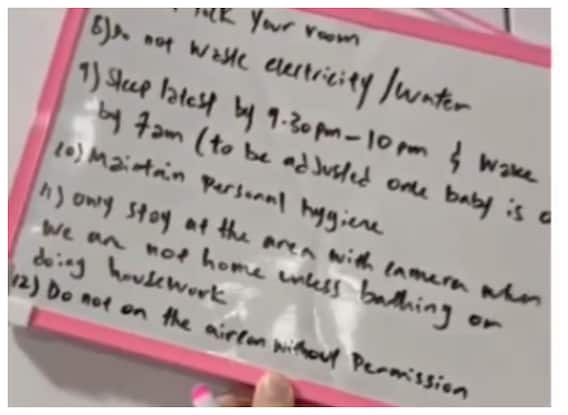 Your room
8) Do not waste electricity / water
9) Sleep latest by 9.30pm – 10pm & wake
by 7am (to be adjusted once baby is
10) Maintain Personal hygiene
11) only stay at the area with camera when
we are not home unless bathing or
doing housework
12) Do not on the aircon without Permission